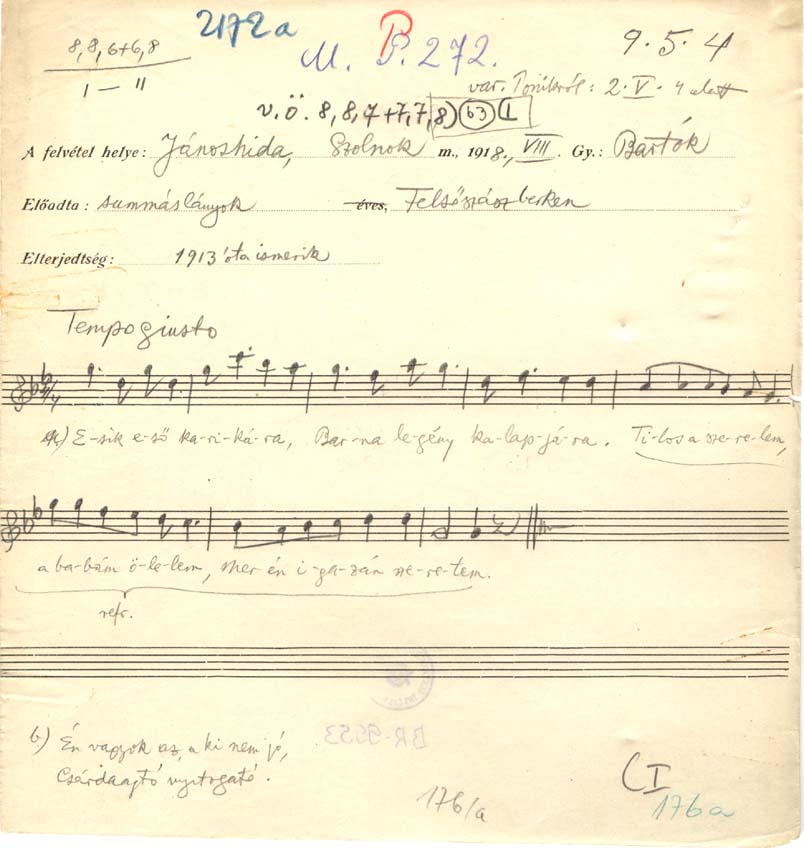 2172a
8,8,6+6,8
I – II
M. P. 272.
B
9. 5. 4
var. : 2. V. 4 alatt
v.ö. 8,8,7+7,7,8) 63 1
A felvétel helye: Jánoshida, Szolnok m., 1918., VIII. Gy.: Bartók
Előadta: summáslányok éves, Felsőszászberken
Elterjedtség: 1913 óta ismerik
Tempo giusto
a) E-sik e-ső ka-ri-ká-ra, Bar-na le-gény ka-lap-já-ra. Ti-los a sze-re-lem,
a ba-bám ö-le-lem, mer én i-ga-zán sze-re-tem.
refr.
BR-9553
b.) Én vagyok az, a ki nem jó,
Csárdaajtó nyitogató.
176/a
C I
176a